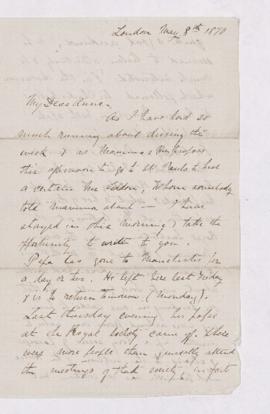 London May 8th 1870
My Dear Anna.
As I have had so
much running about during the
week & as Mamma &
this afternoon to go to St Paul's to hear
a certain Mr Liddon, whom somebody
told Mamma about — I have
stayed in this morning & take the
opportunity to write to you.
Papa has gone to Manchester for
a day or two. He left here last Friday
& is to return tomorrow (Monday).
Last Thursday evening his paper
at the Royal Society came off. There
were more people than generally attend
the meetings of that society, in fact